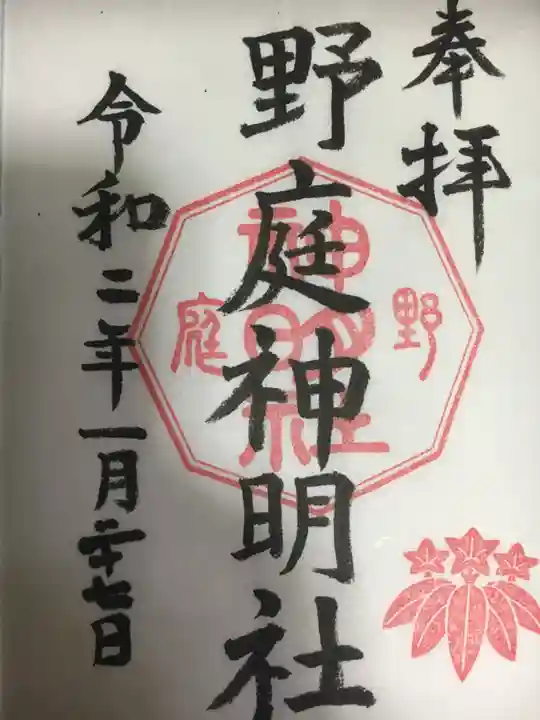 奉拝
野庭神明社
令和二年一月二十七日
野庭
神明社